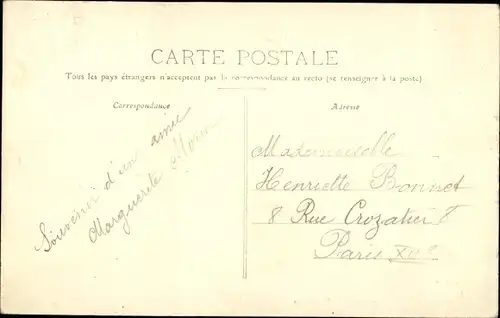 CARTE POSTALE
Tous les pays étrangers n'acceptent pas la correspondance au recto (se renseigner à la poste)
Correspondance
Adresse
Souvenir d'un amie
Marguerite
Mademoiselle
Henriette Bonnet
8 Rue Crozatier 8
Paris XIIe